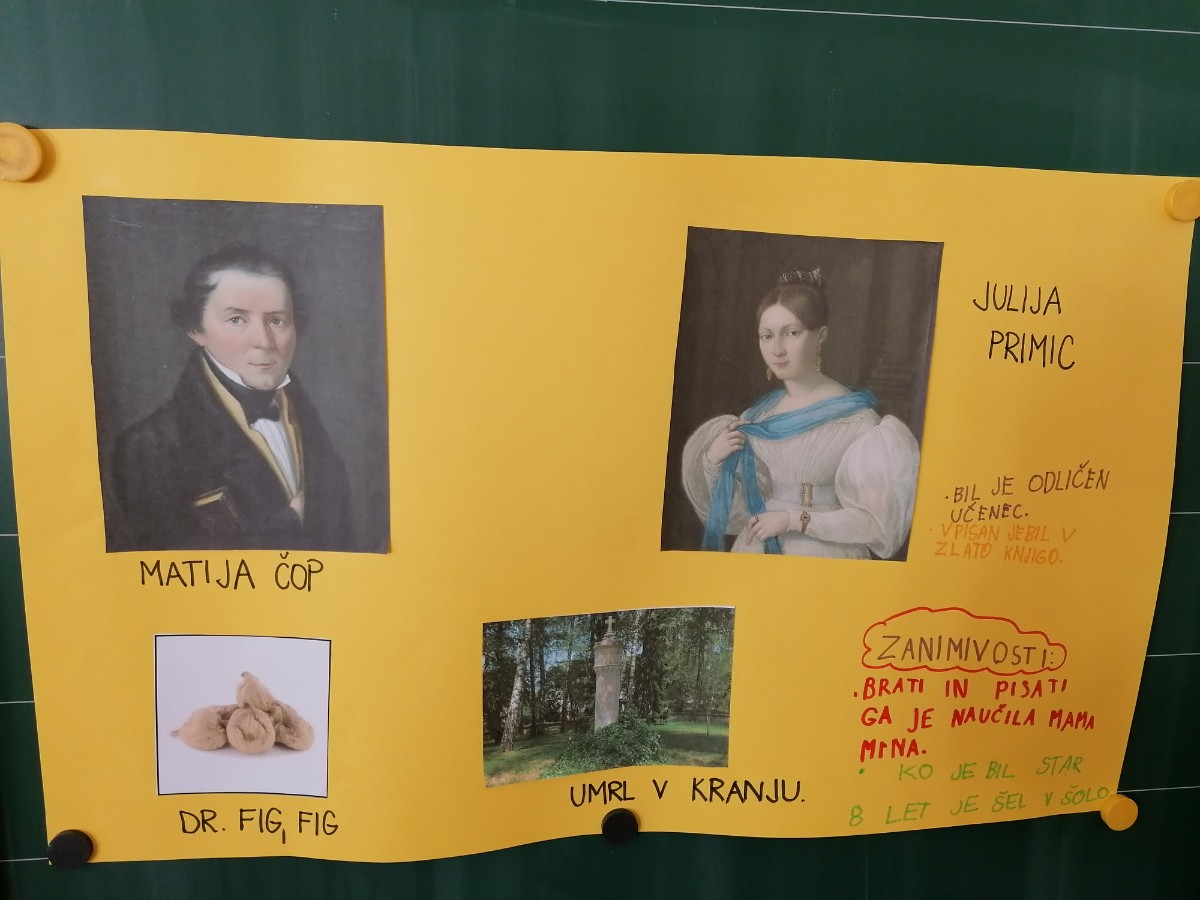 MATIJA ČOP
JULIJA
PRIMIC
• BIL JE ODLIČEN
UČENEC.
• VPISAN JEBIL V
ZLATO KNJIGO.
DR. FIG, FIG
UMRL V KRANJU.
ZANIMIVOSTI:
• BRATI IN PISATI
GA JE NAUČILA MAMA
MINA.
• KO JE BIL STAR
8 LET JE ŠEL V ŠOLO